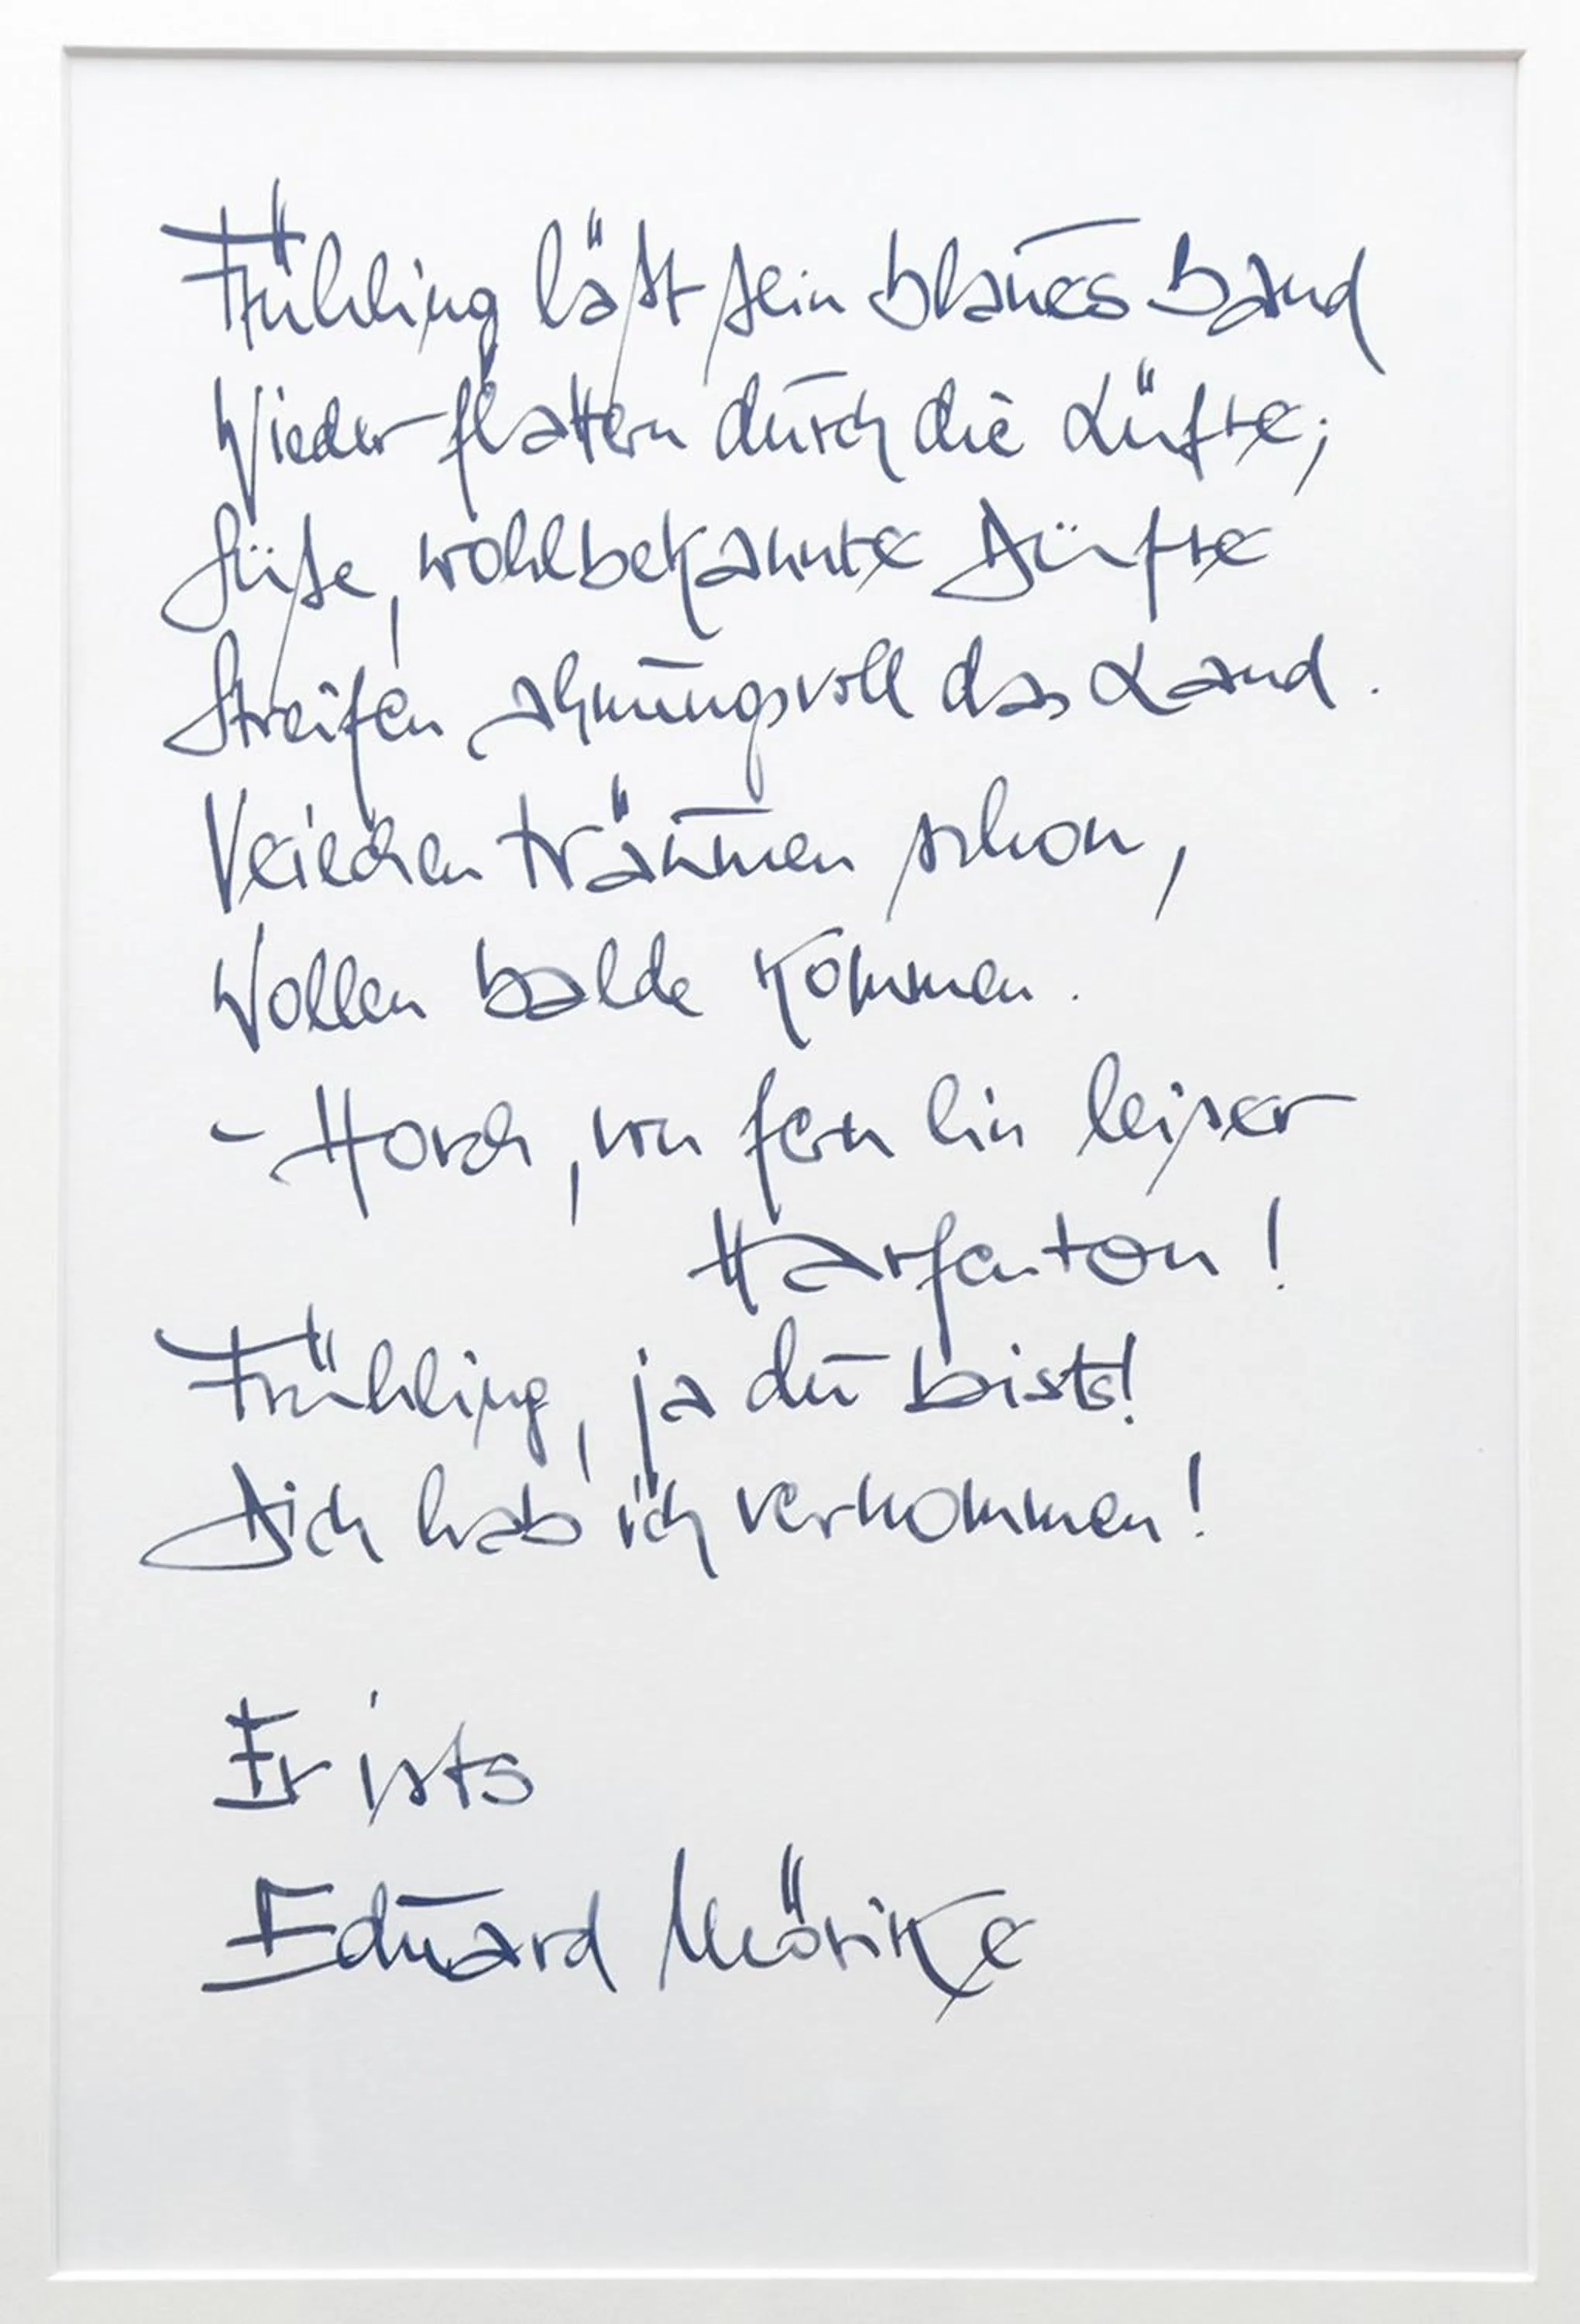 Frühling läßt sein blaues Band
Wieder flattern durch die Lüfte;
Süße, wohlbekannte Düfte
Streifen ahnungsvoll das Land.
Veilchen träumen schon,
Wollen balde kommen.
- Horch, von fern ein leiser
Harfenton!
Frühling, ja du bists!
Dich hab ich vernommen!
Er ists
Eduard Mörike